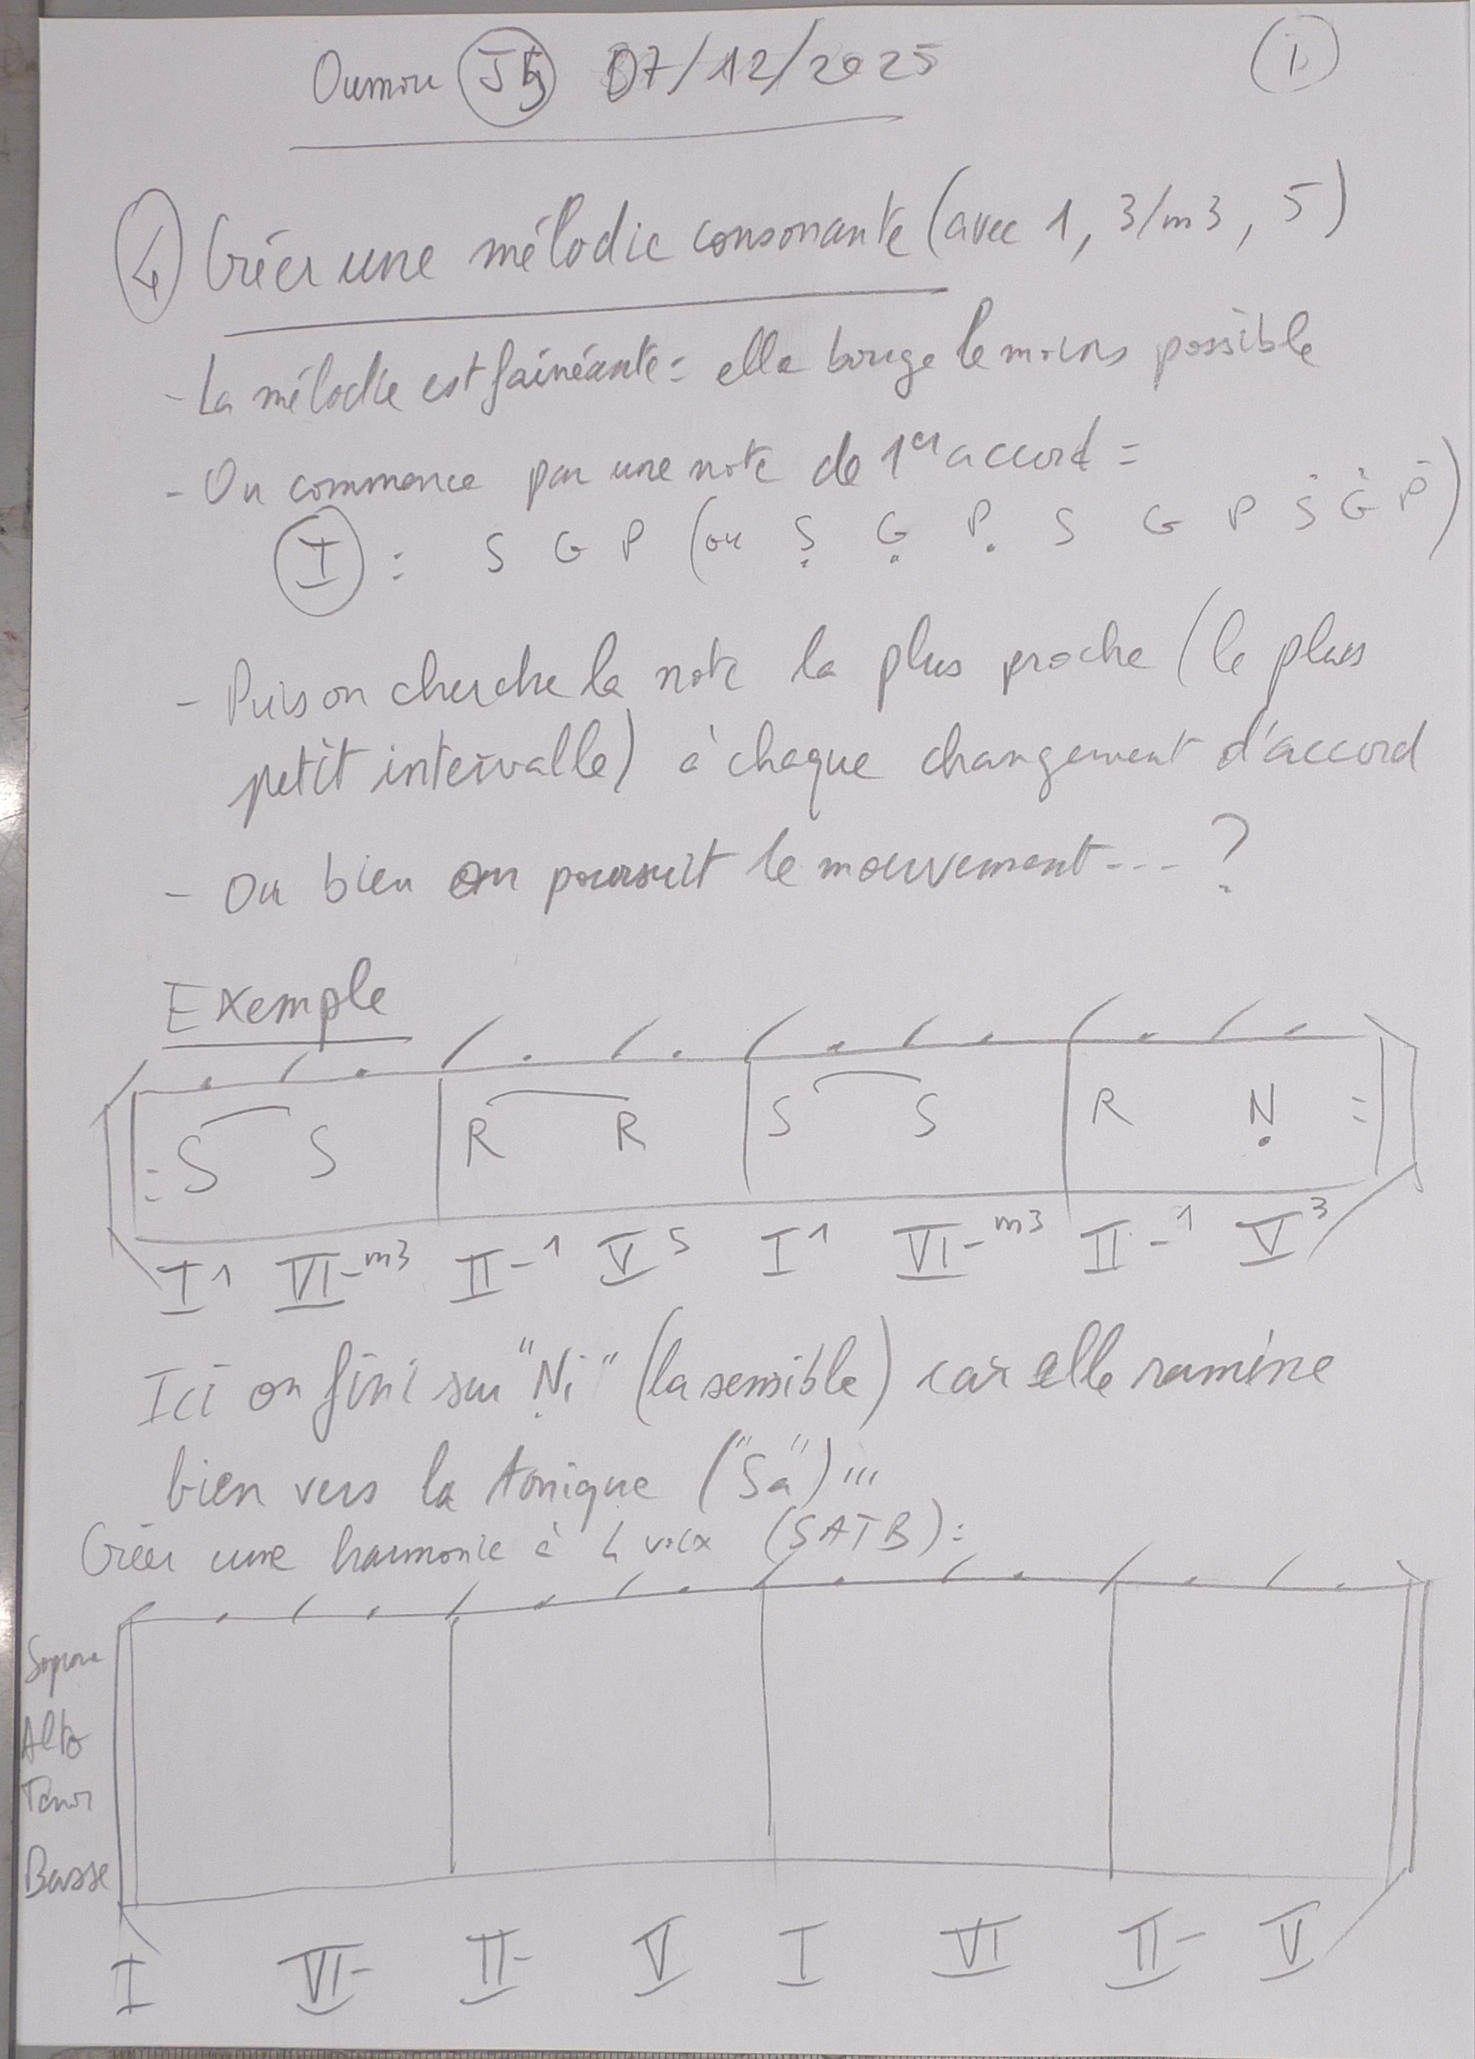 Oumou J5 07/12/2025 1
4 Créer une mélodie consonante (avec 1, 3/m3, 5)
- La mélodie est fainéante = elle bouge le moins possible
- On commence par une note de 1er accord =
I : S G P (ou Ṣ G̣ P̣ S G P Ṡ Ġ Ṗ)
- Puis on cherche la note la plus proche (le plus
petit intervalle) à chaque changement d'accord
- Ou bien on poursuit le mouvement --- ?
Exemple
/ . / . / . / . / . / . / . / .
: S S | R R | S S | R Ṇ :
I 1 VI- m3 II- 1 V 5 I 1 VI- m3 II- 1 V 3
Ici on fini sur "Ṇi" (la sensible) car elle ramène
bien vers la tonique ("Sa") ...
Créer une harmonie à 4 voix (SATB) :
/ . / . / . / . / . / . / . / .
Soprane
Alto
Tenor
Basse
I VI- II- V I VI II- V